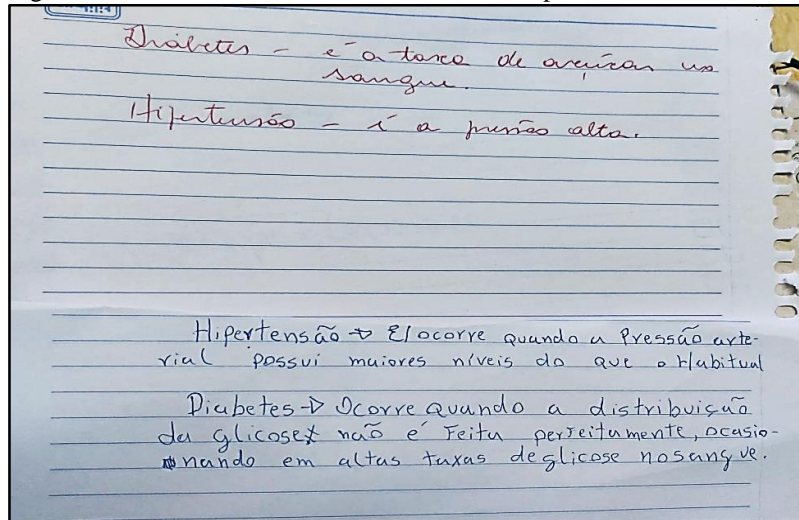 Diábetes - é a taxa de açúcar no
sangue.
Hipertensão - é a pressão alta.
Hipertensão → ocorre quando a Pressão arte-
rial possui maiores níveis do que o Habitual
Diabetes → Ocorre quando a distribuição
da glicose não é Feita perfeitamente, ocasio-
nando em altas taxas de glicose no sangue.